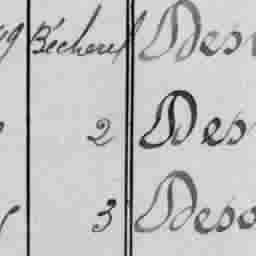 19 Bécherel Des
2 Des
3 Deso